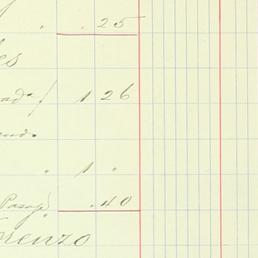 " . 25
es
ad" / 1 26
and.
" 1 "
Pasaj" . 40
orenzo